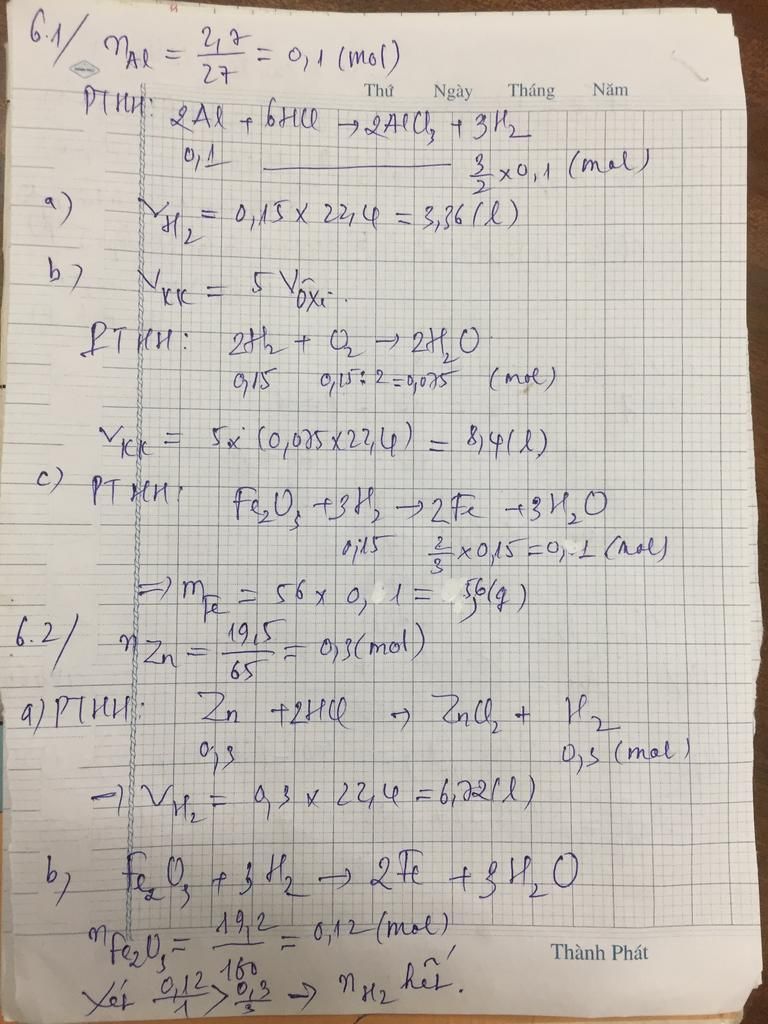 6.1/ nAl = 2,7/27 = 0,1 (mol)
Thứ Ngày Tháng Năm
PTHH: 2Al + 6HCl → 2AlCl3 + 3H2
0,1 3/2 x 0,1 (mol)
a) VH2 = 0,15 x 22,4 = 3,36 (l)
b) VKK = 5 Vôxi.
PTHH: 2H2 + O2 → 2H2O
0,15 0,15:2=0,075 (mol)
VKK = 5x (0,075x22,4) = 8,4(l)
c) PTHH: Fe2O3 +3H2 → 2Fe +3H2O
0,15 2/3 x 0,15 = 0,1 (mol)
=> mFe = 56 x 0,1 = 5,6(g)
6.2/ nZn = 19,5/65 = 0,3(mol)
a) PTHH: Zn +2HCl → ZnCl2 + H2
0,3 0,3 (mol)
→ VH2 = 0,3 x 22,4 = 6,72(l)
b, Fe2O3 + 3H2 → 2Fe +3H2O
nFe2O3 = 19,2/160 = 0,12 (mol)
Thành Phát
Xét 0,12/1 > 0,3/3 → nH2 hết.